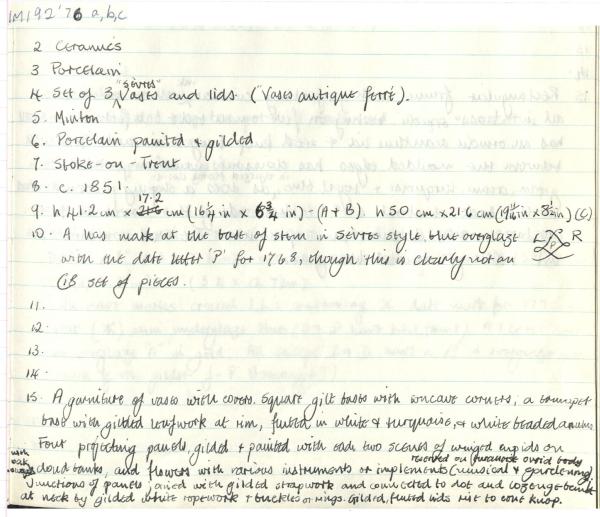 IM192'76 a,b,c
2 Ceramics
3 Porcelain
4 Set of 3 "Sèvres" Vases and lids ("Vases antique ferré").
5. Minton
6. Porcelain painted & gilded
7. Stoke-on-Trent
8. c. 1851.
9. h 41.2 cm x 17.2 cm (16¼ in x 6¾ in) - (A + B). h 50 cm x 21.6 cm (19 11/16 in x 8½ in) (C)
10. A has mark at the base of stem in Sèvres style, blue overglaze L P R
with the date letter 'P' for 1768, though this is clearly not an
C18 set of pieces.
11.
12.
13.
14.
15. A garniture of vases with covers. Square gilt bases with concave corners, a trumpet
base with gilded leafwork at rim, fluted in white & turquoise, & white beaded
Four projecting panels, gilded & painted with each two scenes of winged cupids on
cloud banks, and flowers with various instruments or implements (musical & gardening)
reserved on turquoise ovoid body
with oak
Junctions of panels with gilded strapwork and connected to dot and lozenge
at neck by gilded white ropework & buckles or rings. Gilded, fluted lids rise to cone knop.